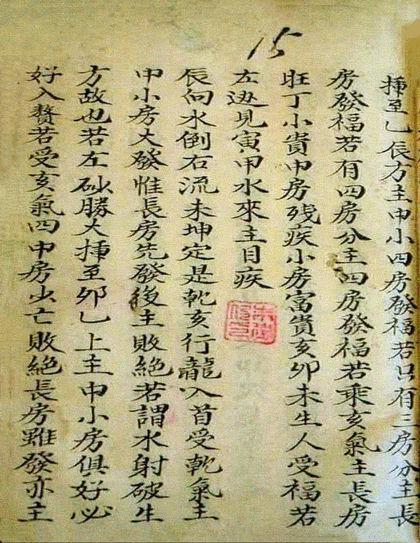 15
揷至乙辰方主中小四房發福若只有三房分主長
房發福若有四房分主四房發福若乘亥氣主長房
旺丁小貴中房殘疾小房富貴亥卯未生人受福若
左边見寅甲水來主目疾
辰向水倒右流未坤定是乾亥行龍入首受乾氣主
中小房大發惟長房先發後主敗絕若謂水射破生
方故也若左砂勝大揷至卯乙上主中小房俱好必
好入贅若受亥氣四中房少亡敗絕長房雖發亦主